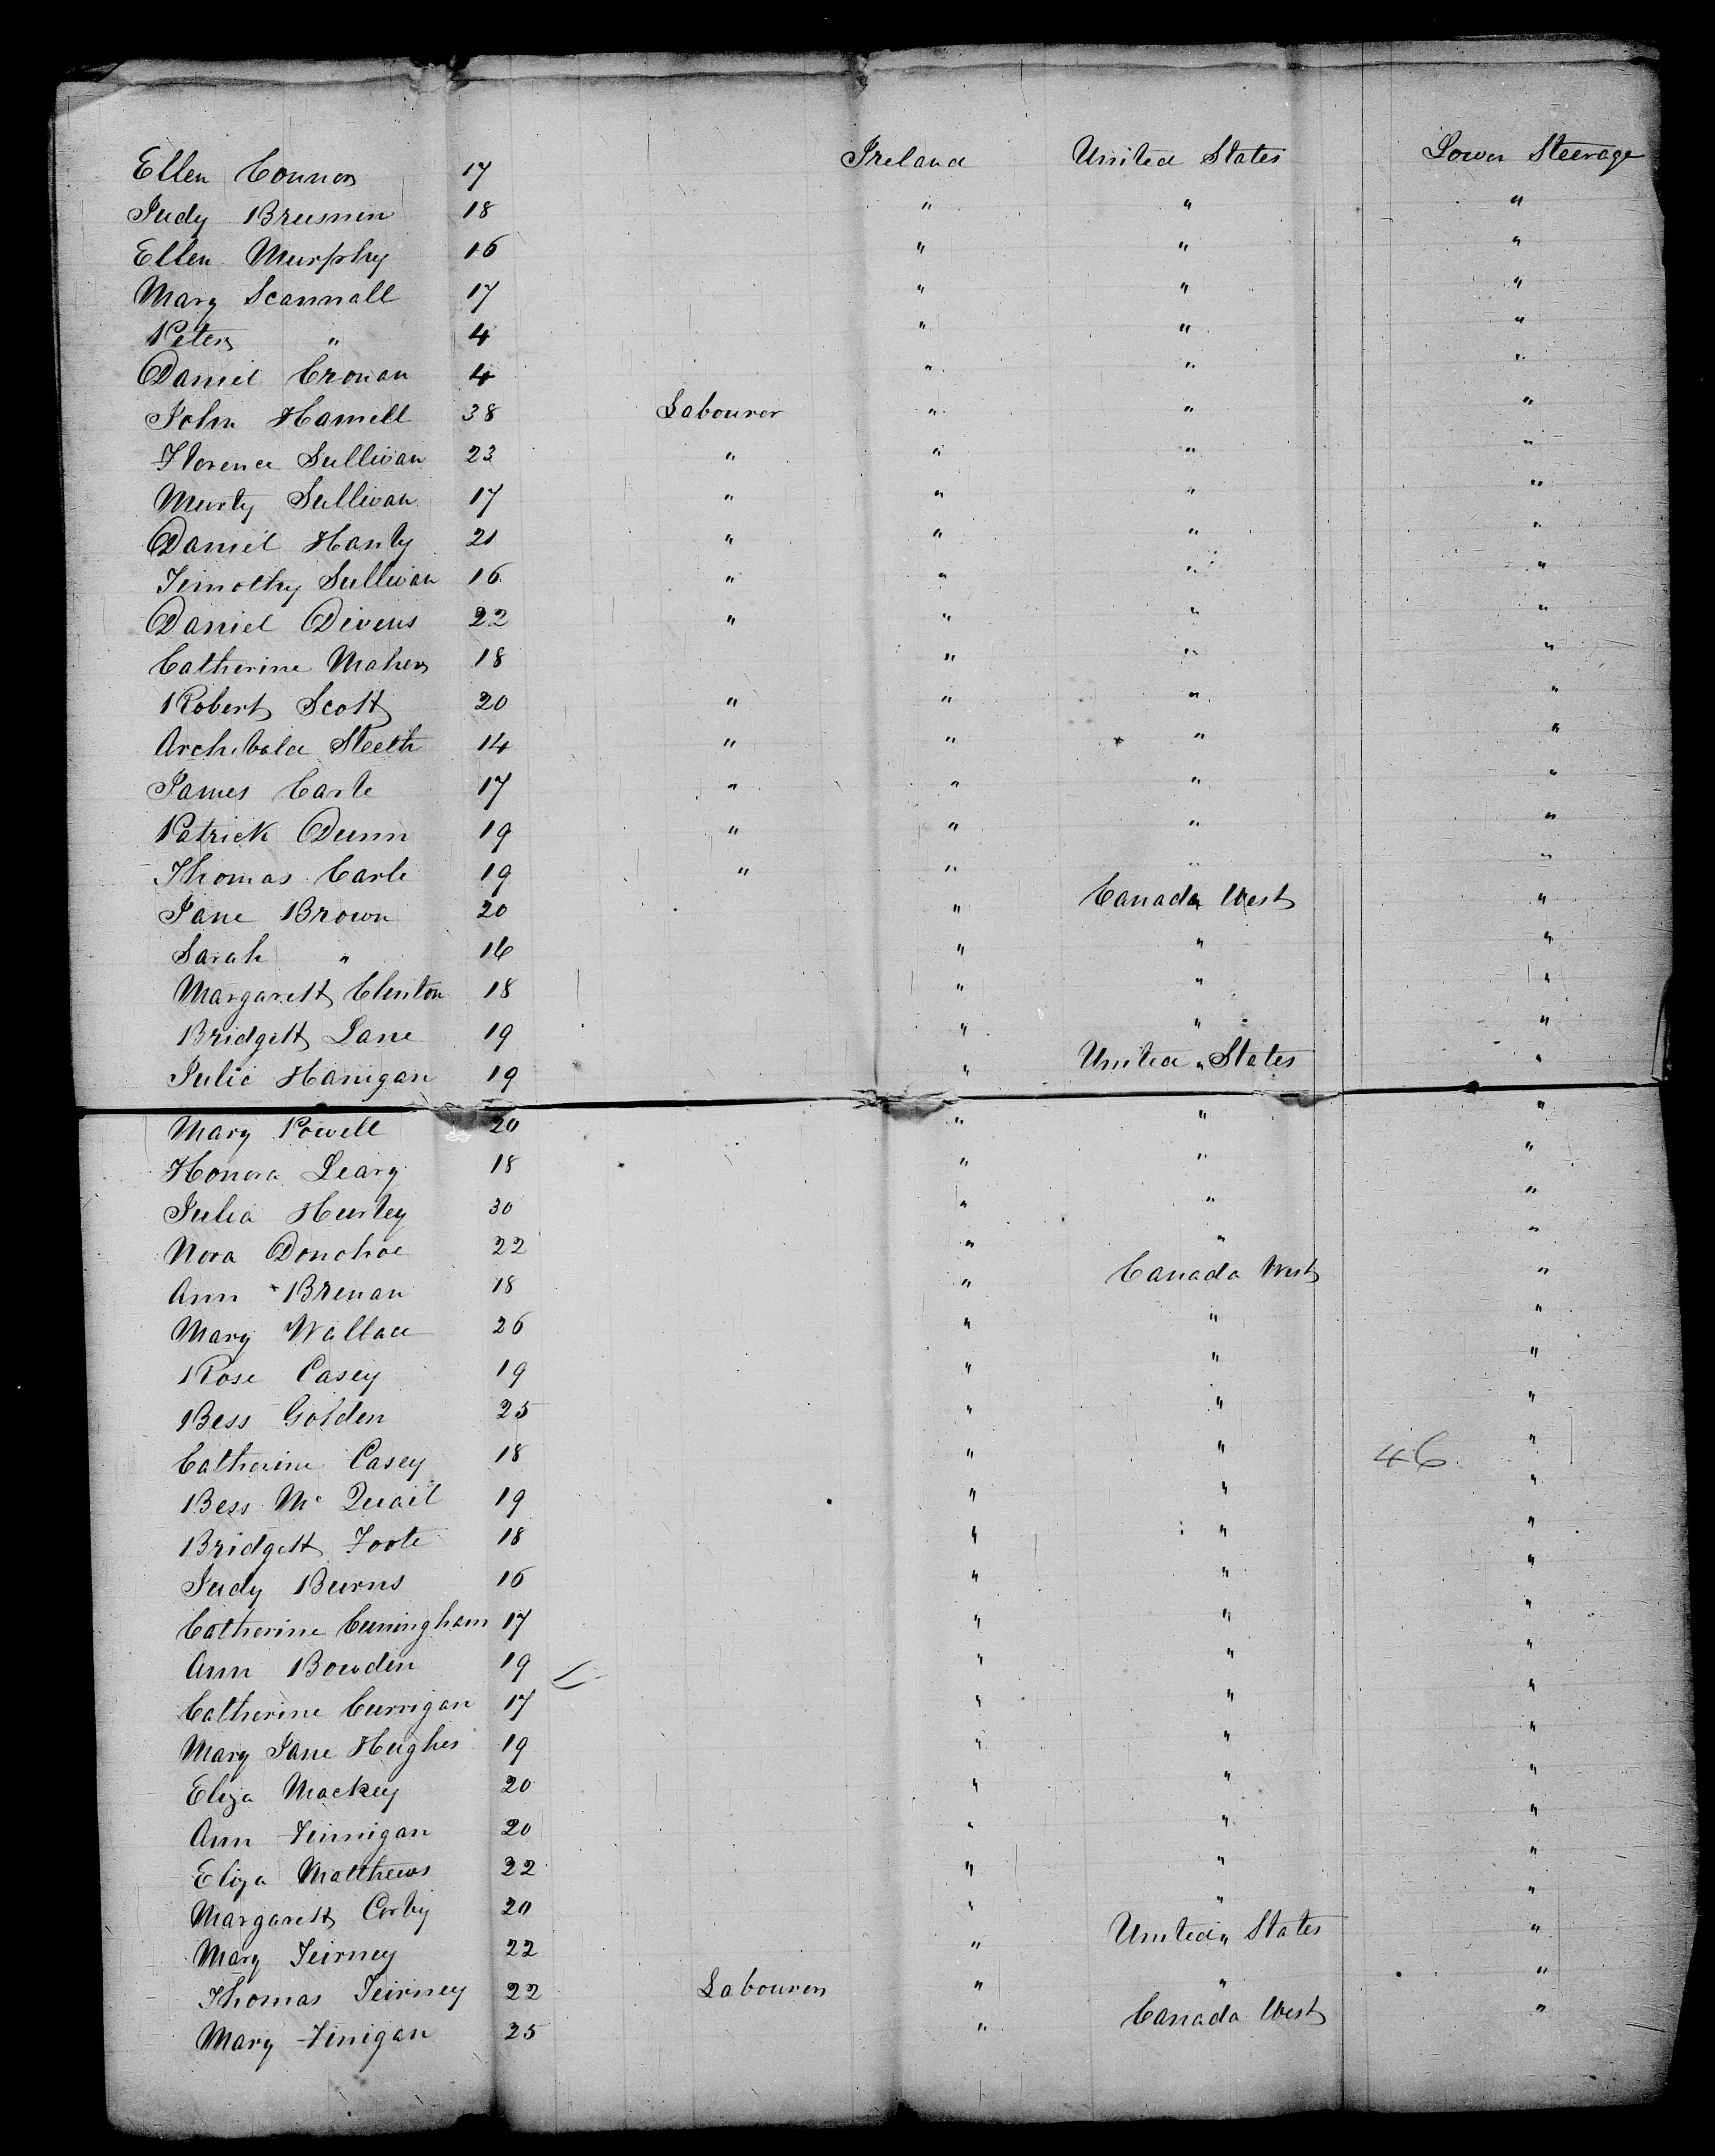 Ellen Connor 17 Ireland United States Lower Steerage
Judy Brusnen 18 " " "
Ellen Murphy 16 " " "
Mary Scannall 17 " " "
Peter " 4 " " "
Daniel Cronan 4 " " "
John Hamell 38 Labourer " " "
Florence Sullivan 23 " " " "
Murty Sullivan 17 " " " "
Daniel Hanly 21 " " " "
Timothy Sullivan 16 " " " "
Daniel Divens 22 " " " "
Catherine Maher 18 " " "
Robert Scott 20 " " " "
Archibald Steeth 14 " " " "
James Carle 17 " " " "
Patrick Dunn 19 " " " "
Thomas Carle 19 " " " "
Jane Brown 20 " Canada West "
Sarah " 16 " " "
Margarett Clinton 18 " " "
Bridgett Lane 19 " " "
Julia Hanigan 19 " United " States "
Mary Powell 20 " " "
Honora Leary 18 " " "
Julia Hurley 30 " " "
Nora Donohoe 22 " " "
Ann Brenan 18 " Canada West "
Mary Wallace 26 " " "
Rose Casey 19 " " "
Bess Golden 25 " " "
Catherine Casey 18 " " 46 "
Bess Mc Quail 19 " " "
Bridgett Foote 18 " " "
Judy Burns 16 " " "
Catherine Cuningham 17 " " "
Ann Bowden 19 " " "
Catherine Currigan 17 " " "
Mary Jane Hughes 19 " " "
Eliza Mackey 20 " " "
Ann Finnigan 20 " " "
Eliza Matthews 22 " " "
Margarett Corby 20 " " "
Mary Teirney 22 " United " States "
Thomas Teirney 22 Labourer " " "
Mary Finigan 25 " Canada West "